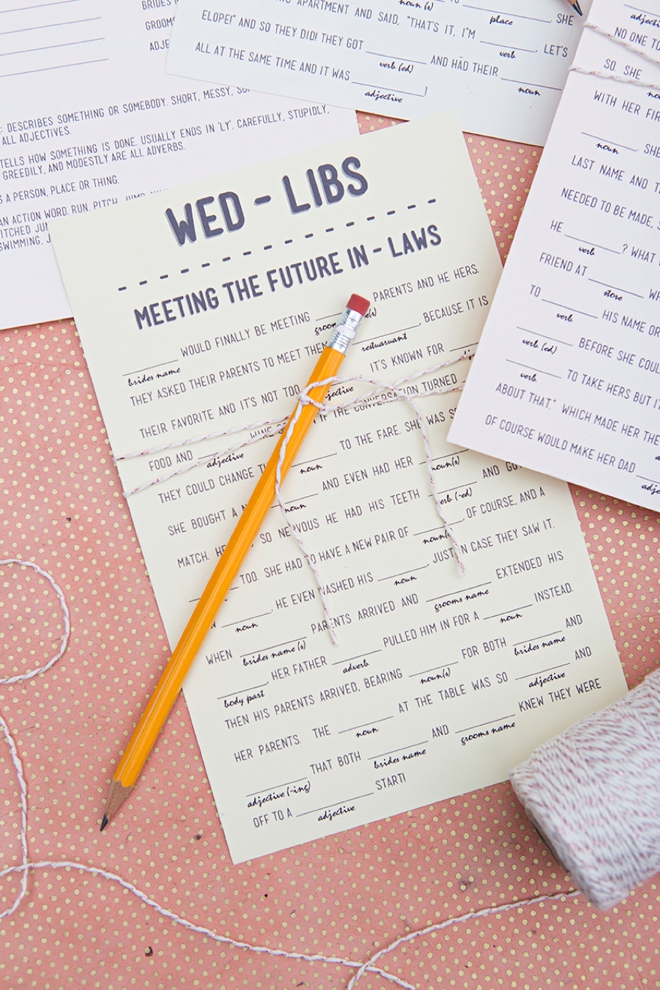 BRIDES N
GROOMS
ADJE
: DESCRIBES SOMETHING OR SOMEBODY. SHORT, MESSY, SO
ALL ADJECTIVES.
TELLS HOW SOMETHING IS DONE. USUALLY ENDS IN 'LY'. CAREFULLY, STUPIDLY,
GREEDILY, AND MODESTLY ARE ALL ADVERBS.
S A PERSON, PLACE OR THING.
AN ACTION WORD. RUN, PITCH, JUMP
PITCHED JUM
SWIMMING, JUM
APARTMENT AND SAID, "THAT'S IT, I'M
noun (s)
place
SHE
ELOPE!" AND SO THEY DID! THEY GOT
LET'S
verb
verb (ed)
AND HAD THEIR
noun
ALL AT THE SAME TIME AND IT WAS
adjective
WED - LIBS
MEETING THE FUTURE IN - LAWS
WOULD FINALLY BE MEETING PARENTS AND HE HERS.
brides name groom
THEY ASKED THEIR PARENTS TO MEET THEM BECAUSE IT IS
restuarant
THEIR FAVORITE AND IT'S NOT TOO IT'S KNOWN FOR
jective
FOOD AND IF THE CONVERSATION TURNED
adjective
THEY COULD CHANGE TO THE FARE. SHE WAS S
noun
SHE BOUGHT A N AND EVEN HAD HER AND GO
noun noun(s)
MATCH. HE SO NERVOUS HE HAD HIS TEETH OF COURSE, AND A
verb (-ed)
TOO. SHE HAD TO HAVE A NEW PAIR OF JUST IN CASE THEY SAW IT.
noun
HE EVEN WASHED HIS EXTENDED HIS
noun noun
WHEN PARENTS ARRIVED AND INSTEAD.
brides name (s) grooms name
HER FATHER PULLED HIM IN FOR A AND
body part adverb noun
THEN HIS PARENTS ARRIVED, BEARING FOR BOTH AND
noun(s) brides name
HER PARENTS. THE AT THE TABLE WAS SO KNEW THEY WERE
noun adjective
THAT BOTH AND
adjective (-ing) brides name grooms name
OFF TO A START!
adjective
adjective
NO ONE TO
SO SHE
WITH HER FIRS
noun
SHE
LAST NAME AND T
NEEDED TO BE MADE,
HE ? WHAT
verb
FRIEND AT W
store
TO HIS NAME OR
verb
BEFORE SHE COUL
verb (ed)
TO TAKE HERS BUT I
verb (ed)
ABOUT THAT." WHICH MADE HER THE
OF COURSE WOULD MAKE HER DAD
adjec